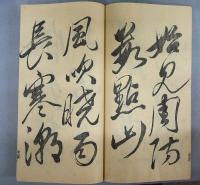 始見
數點山
風吹曉雨
長寒潮